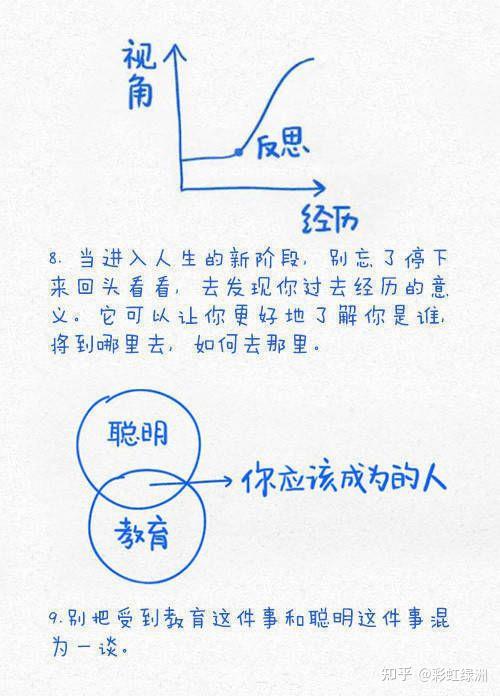 视
角
反思
经历
8. 当进入人生的新阶段，别忘了停下
来回头看看，去发现你过去经历的意
义。它可以让你更好地了解你是谁，
将到哪里去，如何去那里。
聪明
你应该成为的人
教育
9.别把受到教育这件事和聪明这件事混
为一谈。
知乎 @彩虹绿洲